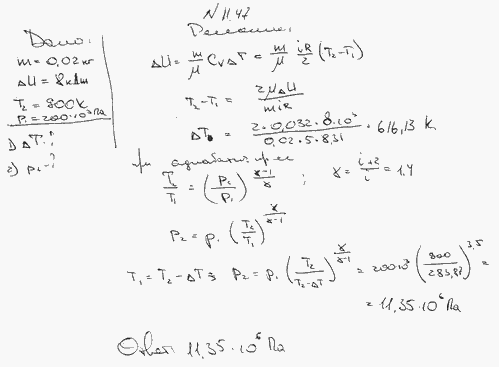 N 11.47
Дано:
Решение:
m = 0,02 кг
ΔU = 8 кДж
T₂ = 800 K
P₁ = 200·10³ Па
1) ΔT-?
2) p₂-?
ΔU = m/μ Cᵥ ΔT = m/μ iR/2 (T₂-T₁)
T₂-T₁ = 2μΔU/miR
ΔT = 2·0,032·8·10³/0,02·5·8,31 = 616,13 K
при адиабатич. пр-се
T₂/T₁ = (P₂/P₁)^(γ-1/γ) ; γ = i+2/i = 1.4
P₂ = P₁ (T₂/T₁)^(γ/γ-1)
T₁ = T₂ - ΔT ⇒ P₂ = P₁ (T₂/T₂-ΔT)^(γ/γ-1) = 200·10³ (800/283,87)^3,5 =
= 11,35·10⁶ Па
Ответ: 11,35·10⁶ Па